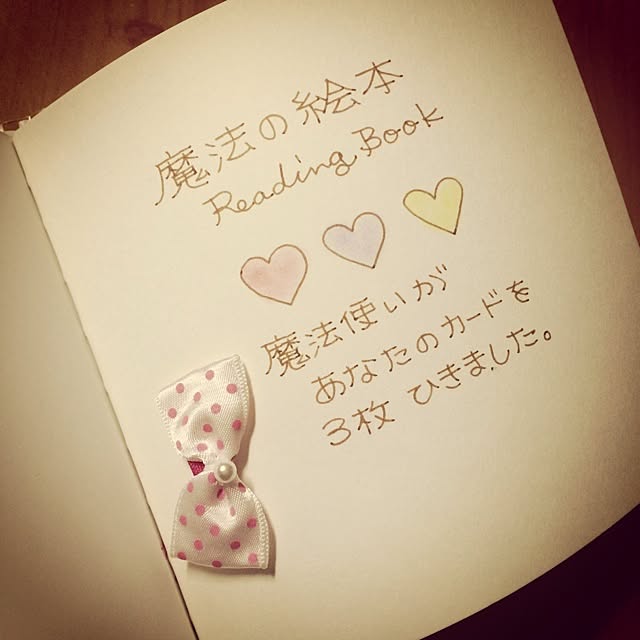 魔法の絵本
Reading Book
魔法使いが
あなたのカードを
3枚 ひきました。